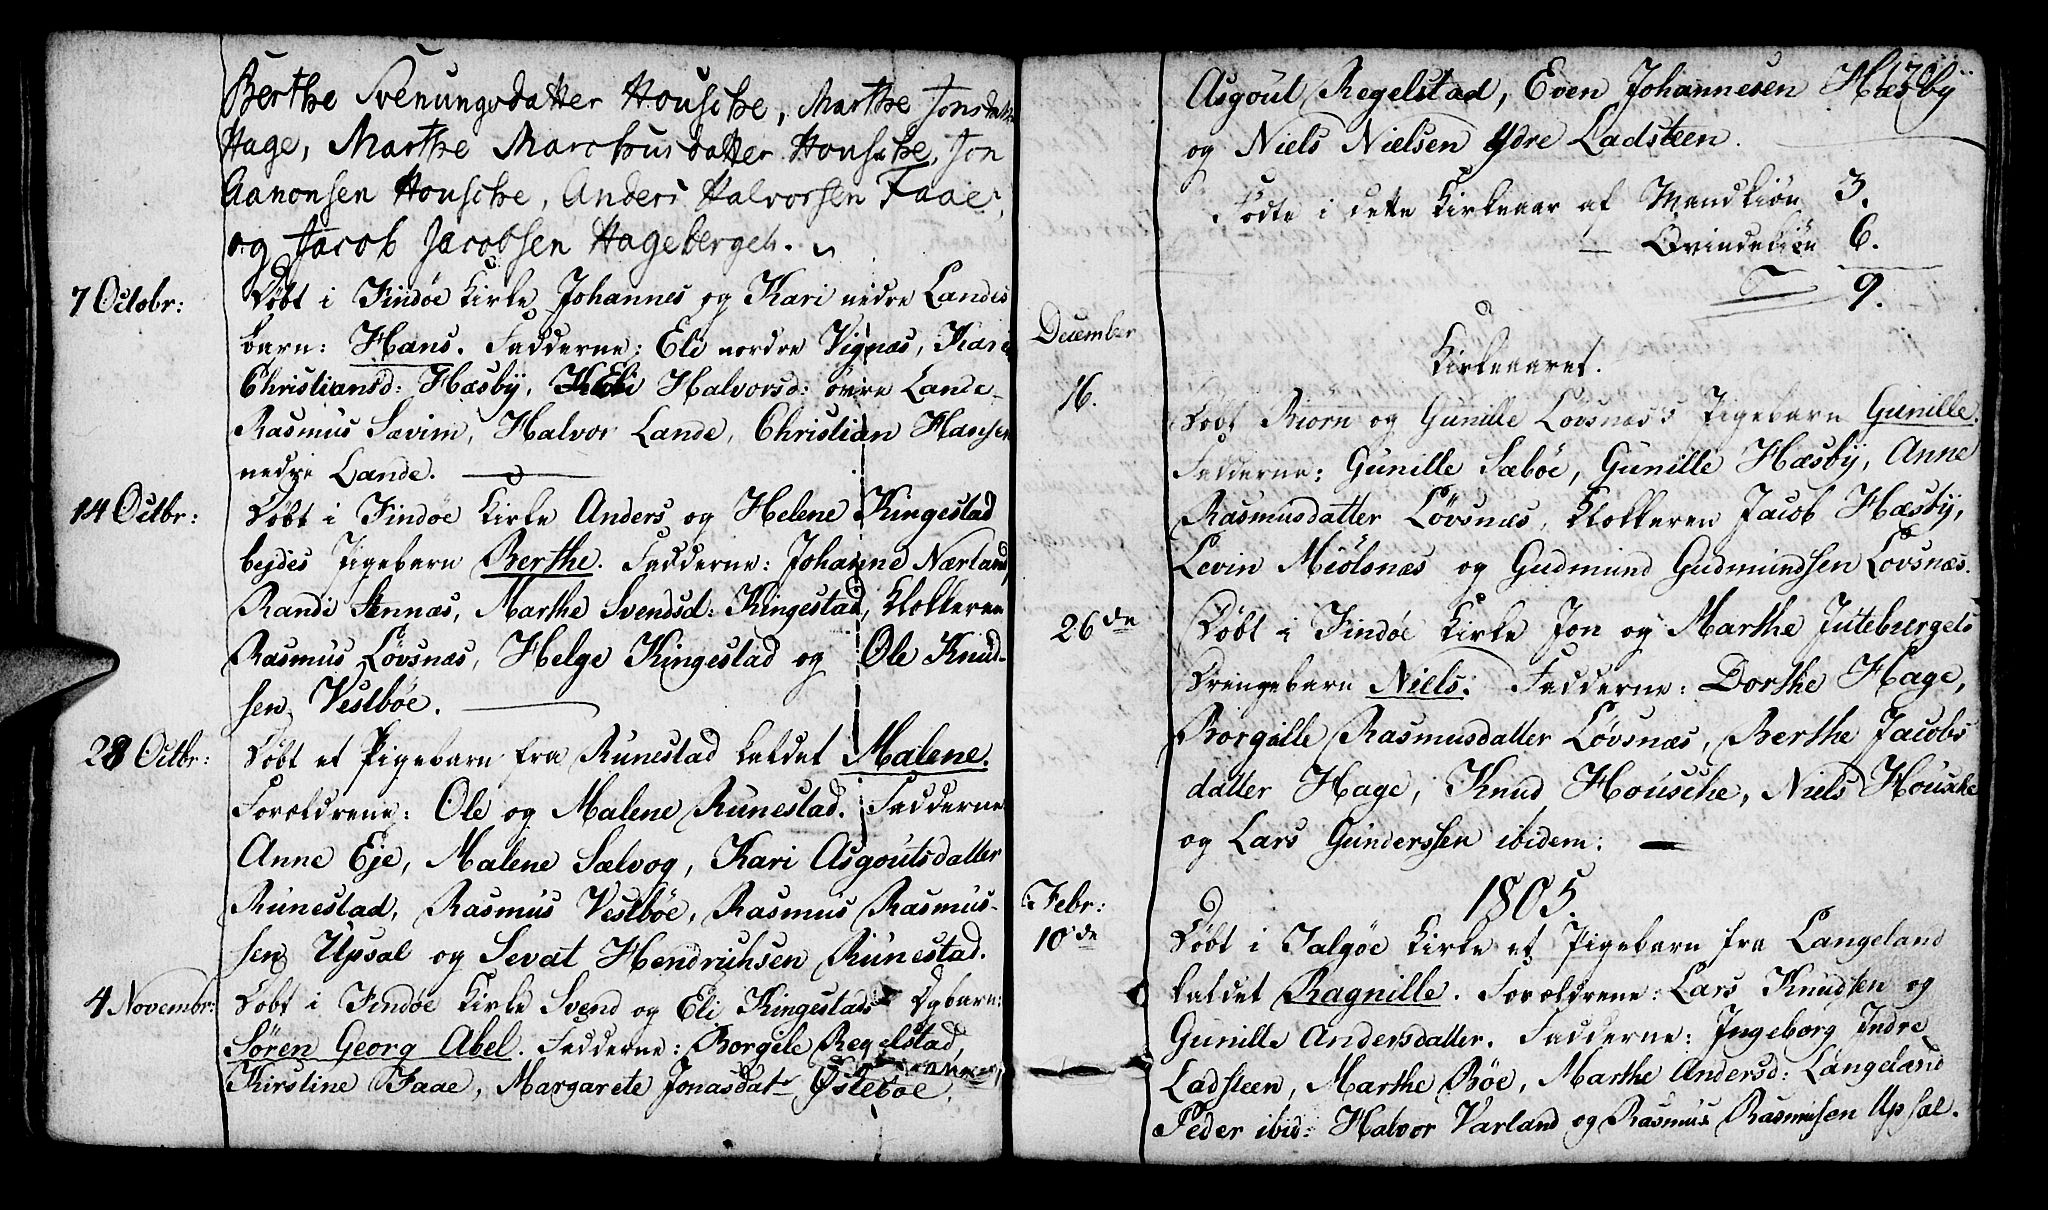 Berthe Svenungsdatter Housche, Marthe Jonsdatter
Hage, Marthe Marchusdatter Housche, Jon
Aanonsen Housche, Anders Halvorsen Faae,
og Jacob Jacobsen Hageberget.
7 Octobr: Døbt i Findøe Kirke Johannes og Kari nedre Landes
barn: Hans. Fadderne: Eli nordre Vignæs, Kari
Christiansd: Hæsbÿ, Eli Halvorsd: øvre Lande
Rasmus Sævim, Halvor Lande, Christian Hansen
nedre Lande.
14 Octbr: Døbt i Findøe Kirke Anders og Helene Kingestad
bejdes Pigebarn Berthe. Fadderne: Johanne Nærland,
Randi Stennæs, Marthe Svendsd: Kingestad, Klokkeren
Rasmus Løvsnæs, Helge Kingestad og Ole Knud-
sen Vestbøe.
28 Octbr: Døbt et Pigebarn fra Runestad kaldet Malene.
Forældrene: Ole og Malene Runestad. Fadderne
Anne Eje, Malene Sælvog, Kari Asgoutsdatter
Runestad, Rasmus Vestbøe, Rasmus Rasmus-
sen Upsal og Sevat Hendrichsen Runestad.
4 Novembr: Døbt i Findøe Kirke Svend og Eli Kingestads Dgbarn:
Søren Georg Abel. Fadderne: Borgele Regelstad,
Kirstine Faae, Margarete Jonasdatr Østebøe,
Asgout Regelstad, Even Johannesen Hæsbÿ
og Niels Nielsen Ydre Ladsteen.
Fødte i dette Kirkeaar af Mandkiøn 3.
— Qvindekiøn 6.
9.
Kirkeaaret.
December
16. Døbt Biørn og Gunille Løvsnæs's Pigebarn Gunille.
Fadderne: Gunille Sæbøe, Gunille Hæsbÿ, Anne
Rasmusdatter Løvsnæs, Klokkeren Jacob Hæsbÿ,
Levin Miölsnæs og Gudmund Gudmundsen Løvsnæs.
26de Døbt i Findøe Kirke Jon og Marthe Jutebergets
Drengebarn Niels. Fadderne: Dorthe Hage,
Borgille Rasmusdatter Løvsnæs, Berthe Jacobs
datter Hage, Knud Housche, Niels Housche
og Lars Gunderssen ibidem:
1805.
Febr:
10de Døbt i Talgøe Kirke et Pigebarn fra Langeland
kaldet Ragnille. Forældrene: Lars Knudsen og
Gunille Andersdatter. Fadderne: Ingeborg Indre
Ladsteen, Marthe Bøe, Marthe Andersd: Langeland
Peder ibid: Halvor Varland og Rasmus Rasmusen Upsal.